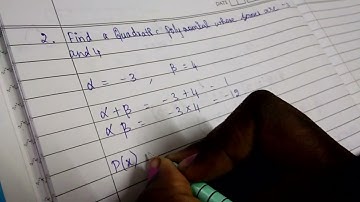 2. Find a Quadratic polynomial whose zeroes are -3
and 4
α = -3 , β = 4
α + β = -3 + 4 = 1
α β = -3 × 4 = -12
P(x)